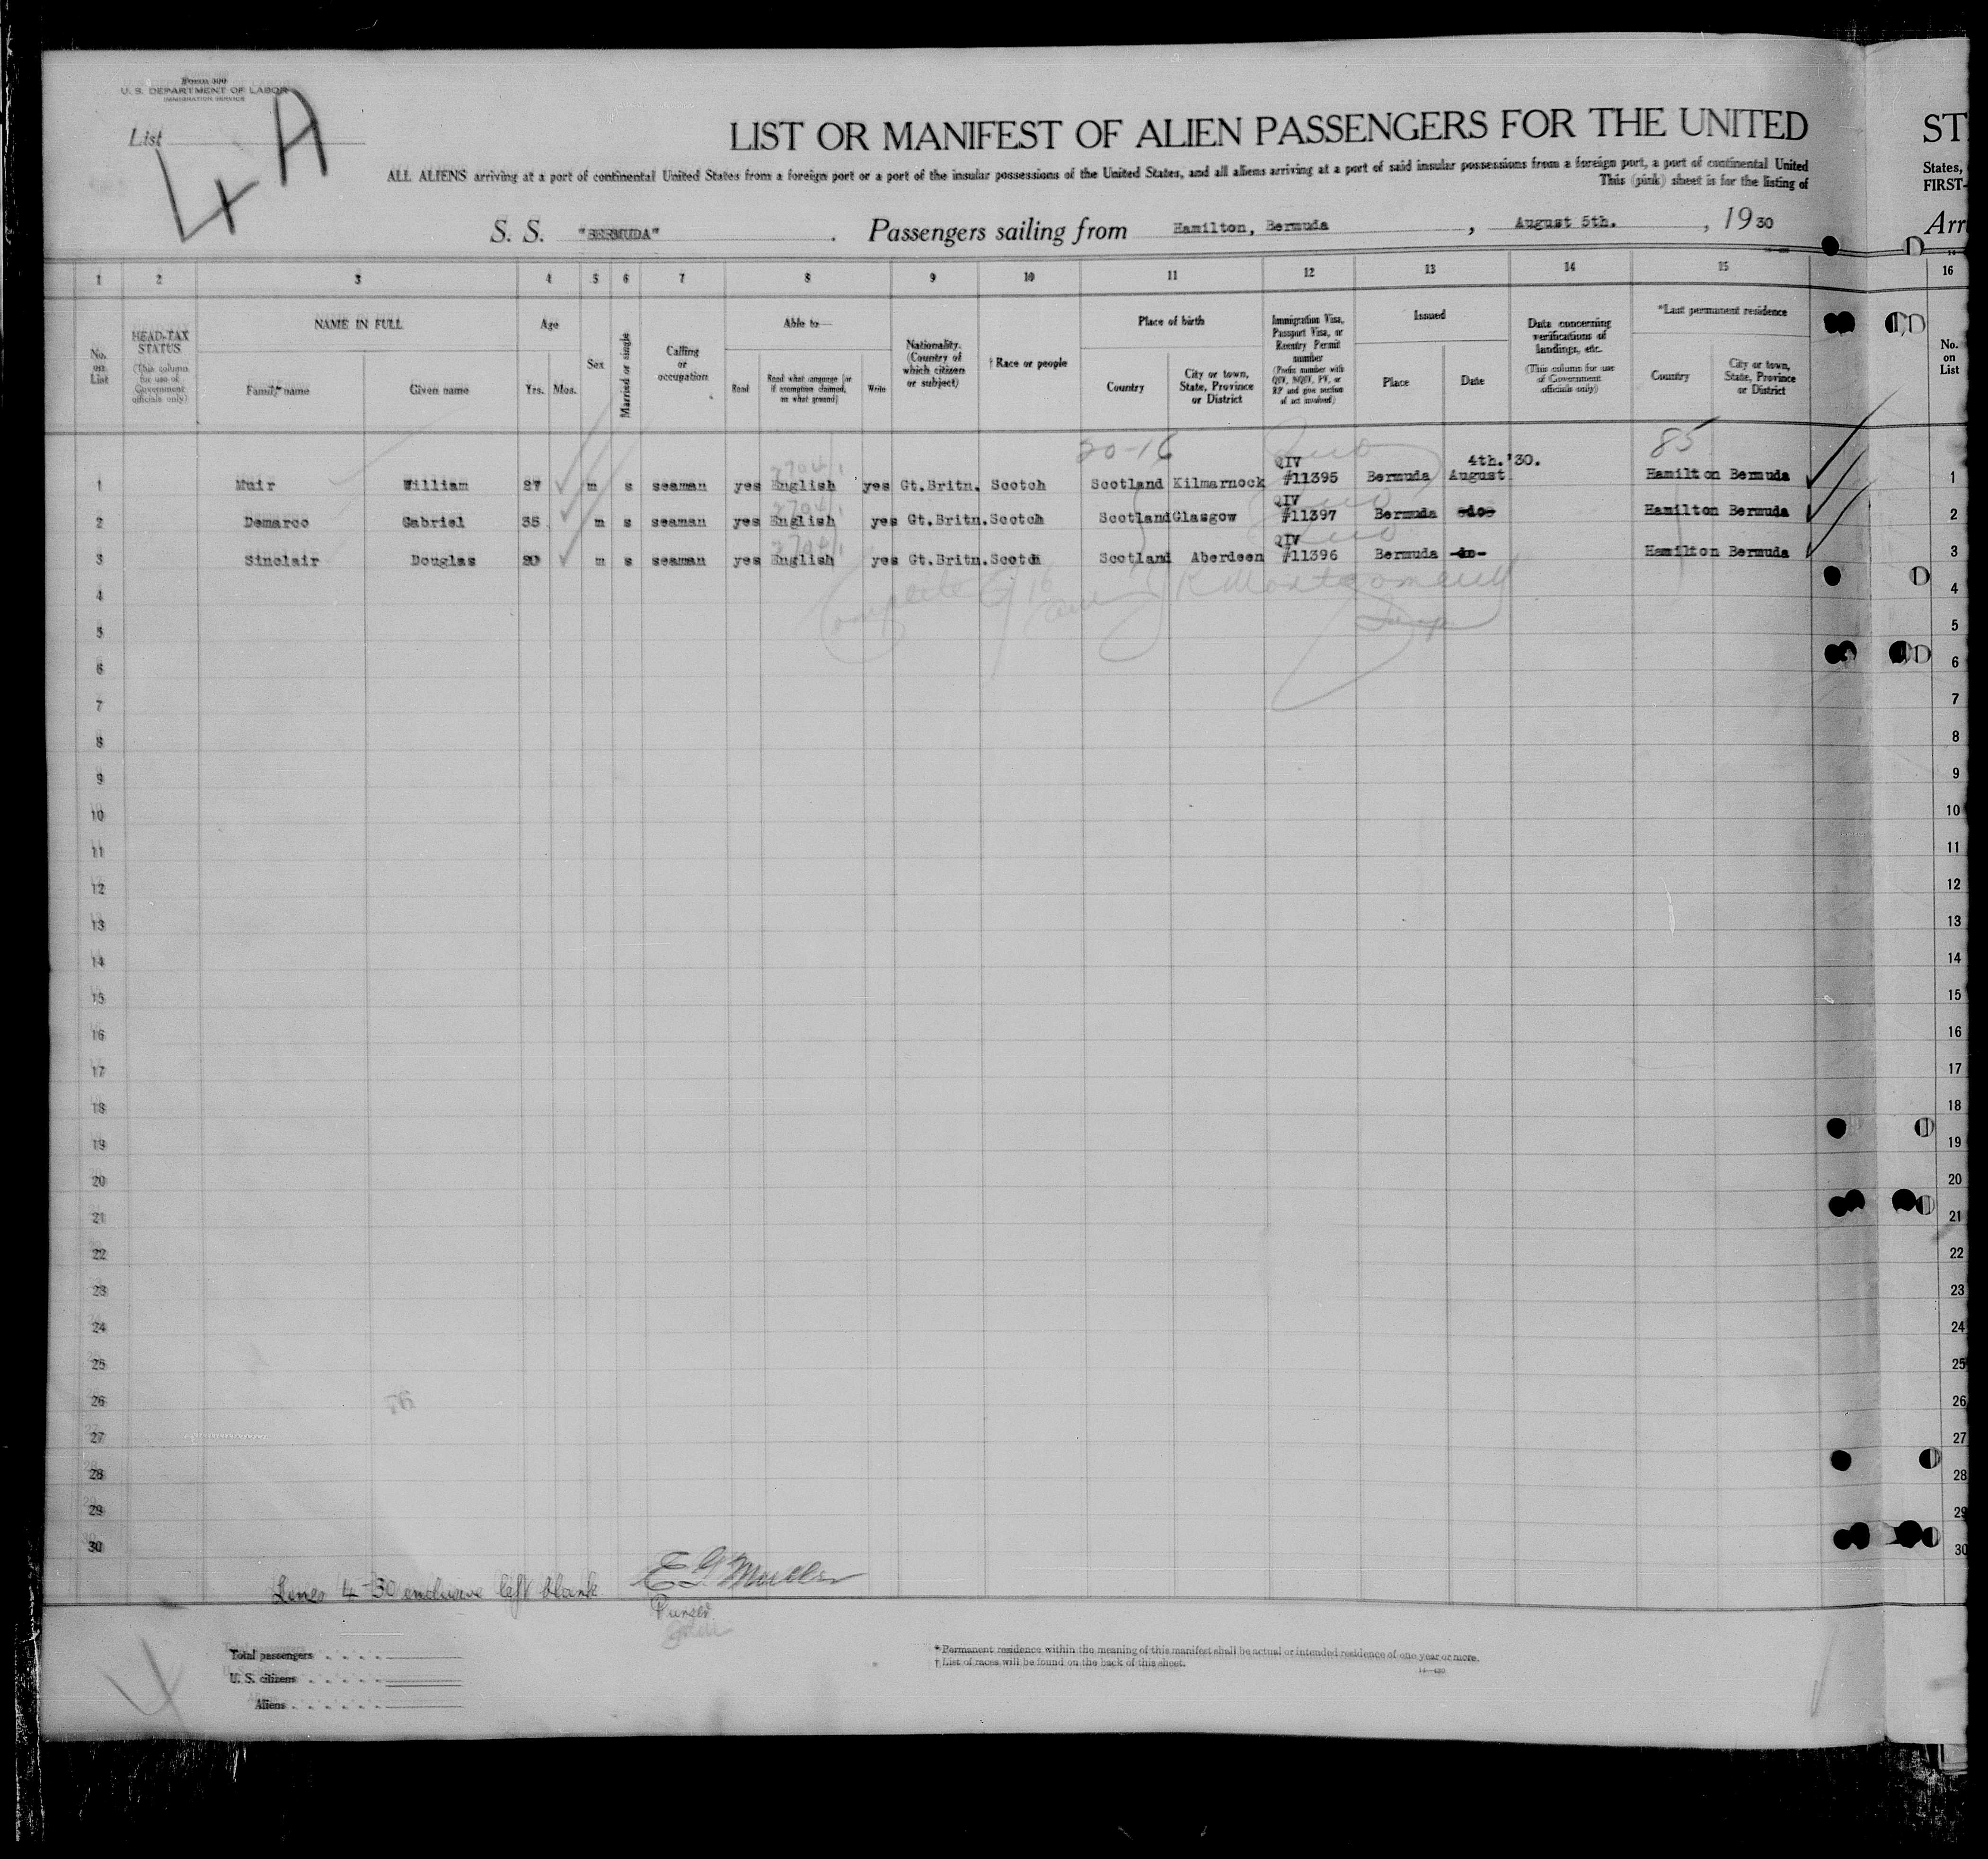 Form 500
U. S. DEPARTMENT OF LABOR
IMMIGRATION SERVICE
List 4 A
LIST OR MANIFEST OF ALIEN PASSENGERS FOR THE UNITED
ST
ALL ALIENS arriving at a port of continental United States from a foreign port or a part of the insular possessions of the United States, and all aliens arriving at a port of said insular possessions from a foreign port, a port of continental United
States,
This (pink) sheet is for the listing of
FIRST-
S. S. "BERMUDA". Passengers sailing from Hamilton, Bermuda, August 5th., 1930
Arr
1 2 3 4 5 6 7 8 9 10 11 12 13 14 15 16
No. on List
HEAD-TAX STATUS (This column for use of Government officials only)
NAME IN FULL
Family name
Given name
Age
Yrs. Mos.
Sex
Married or single
Calling or occupation
Able to—
Read
Read what language (or if exemption claimed, on what ground)
Write
Nationality. (Country of which citizen or subject)
† Race or people
Place of birth
Country
City or town, State, Province or District
Immigration Visa, Passport Visa, or Reentry Permit number (Prefix number with QIV, NQIV, PV, or RP and give section of act involved)
Issued
Place
Date
Data concerning verifications of landings, etc. (This column for use of Government officials only)
*Last permanent residence
Country
City or town, State, Province or District
No. on List
20-16
85
1 Muir William 27 m s seaman yes English yes Gt.Britn. Scotch Scotland Kilmarnock QIV #11395 Bermuda 4th.'30. August Hamilton Bermuda 1
2 Demarco Gabriel 35 m s seaman yes English yes Gt.Britn. Scotch Scotland Glasgow QIV #11397 Bermuda -do- Hamilton Bermuda 2
3 Sinclair Douglas 20 m s seaman yes English yes Gt.Britn. Scotch Scotland Aberdeen QIV #11396 Bermuda -do- Hamilton Bermuda 3
4 4
5 5
6 6
7 7
8 8
9 9
10 10
11 11
12 12
13 13
14 14
15 15
16 16
17 17
18 18
19 19
20 20
21 21
22 22
23 23
24 24
25 25
26 26
27 27
28 28
29 29
30 30
Lines 4-30 inclusive left blank
Purser
Total passengers
U. S. citizens
Aliens
* Permanent residence within the meaning of this manifest shall be actual or intended residence of one year or more.
† List of races will be found on the back of this sheet.